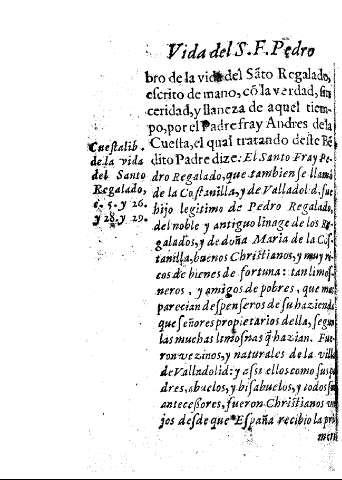 Vida del S. F. Pedro
bro de la vida del Sãto Regalado,
escrito de mano, cõ la verdad, sin
ceridad, y llaneza de aquel tiem-
po, por el Padre fray Andres de la
Cuesta, el qual tratando deste Bẽ
dito Padre dize: El Santo Fray Pe-
dro Regalado, que tambien se llamà
de la Costanilla, y de Valladolid, fue
hijo legitimo de Pedro Regalado,
del noble y antiguo linage de los Re
galados, y de doña Maria de la Cos-
tanilla, buenos Christianos, y muy ri-
cos de bienes de fortuna: tan limos-
neros, y amigos de pobres, que mas
parecian despenseros de su hazienda
que señores propietarios della, segun
las muchas limosnas q̃ hazian. Fue-
ron vezinos, y naturales de la villa
de Valladolid: y assi ellos como sus pa
dres, abuelos, y bisabuelos, y todos sus
antecessores, fueron Christianos vie
jos desde que España recibio la pri
mera
Cuesta lib.
de la vida
del Santo
Regalado,
c. 5. y 26.
y 28. y 29.